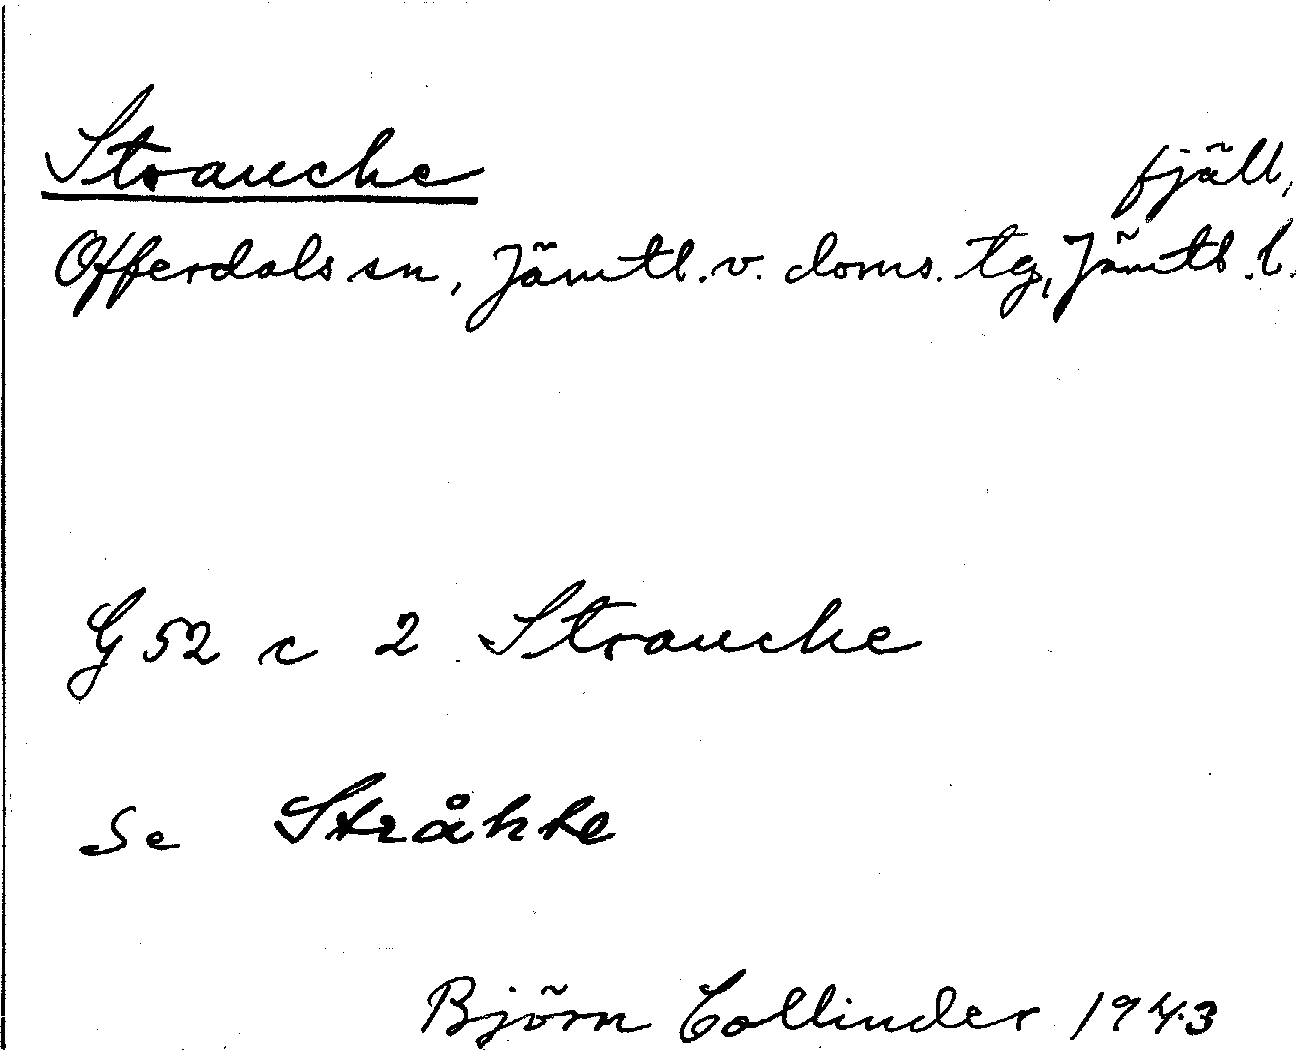 Strauche
fjäll,
Offerdals sn, Jämtl. v. doms. tg, Jämtl. l.
G 52 c 2 Strauche
Se Stråhke
Björn Collinder 1943